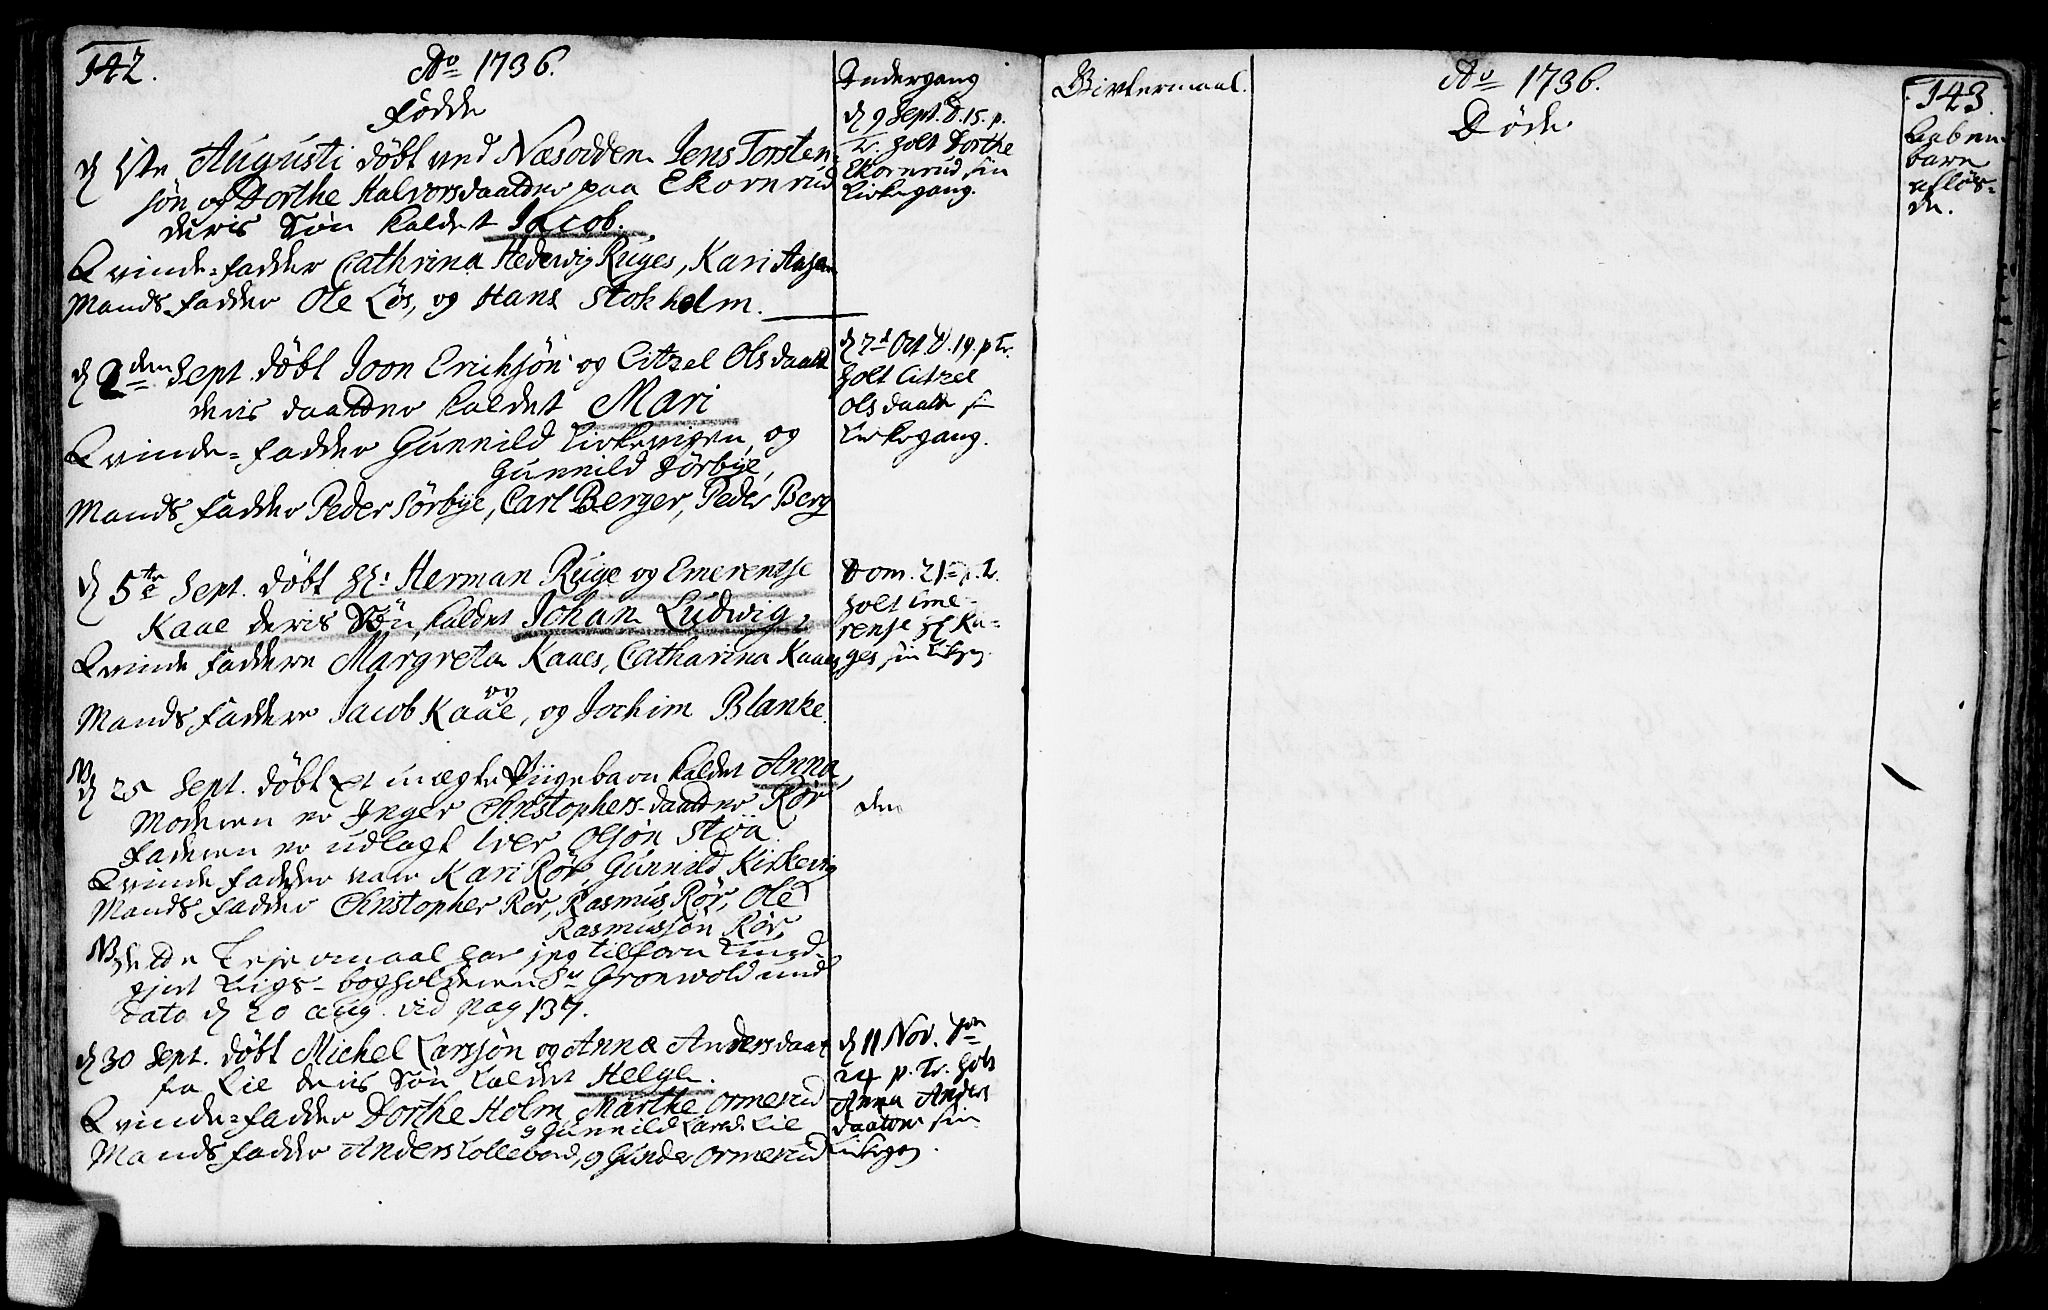 142.
Ao 1736.
Fødde
d 1ste Augusti døbt ved Næsodden Jens Torsten
søn og Dorthe Halvorsdaatter paa Ekornrud
deris Søn kaldet Jacob.
Qvinde-fadder Cathrina Hedewig Ruges, Kari
Mands fadder Ole Løs, og Hans Stokholm.
d 2den Sept. døbt Joon Erichsøn og Citzel Olsdaatt
deris daatter kaldet Mari
Qvinde-fadder Gunnild Kirkevigen, og
Gunnild Sørbye,
Mands fadder Peder Sørbye, Carl Berger, Peder Berg
d 5te Sept. døbt Hr: Herman Ruge og Emerentse
Kaae deris Søn, kaldet Johan Ludwig,
Qvinde faddere Margreta Kaaes, Catharina Kaaes
Mands faddere Jacob Kaae, og Jochim Blanke.
NB d 25 Sept. døbt et uægte Pigebarn kaldet Anna,
Moderen er Inger Christophers-daatter Rör
Faderen er udlagt Iver Olsøn
Qvinde fadder vare Kari Rör, Gunnild Kirkevig
Mands fadder Christopher Rör, Rasmus Rör, Ole
Rasmussøn Rör,
NB dette Lejermaal har jeg tilforn kund-
gjort bogholderen Sr Gronwold und
dato d 20 aug. vid pag 137.
d 30 Sept. døbt Michel Larssøn og Anna Andersdaat
fra Lie deris Søn kaldet Helge.
Qvinde-fadder Dorthe Holm, Marthe Ormerud
og Gunnild Lie
Mands fadder Anders Kollebond, og Gunder Ormerud
Indergang
d 9 Sept. D. 15. p.
Tr. holt Dorthe
Ekornrud sin
Kirkegang.
d 7d Oct. D. 19. p Tr.
holt Citzel
Olsdaatt sin
Kirkegang.
Dom. 21 p. Tr.
holt Eme-
rense Hr Ru-
ges sin
den
d 11 Nov. Dom
24 p. Tr. holt
Anna Anders
daatter sin
Givtermaal.
Ao 1736.
Døde
143.
Aaben-
bare
afløs-
de.